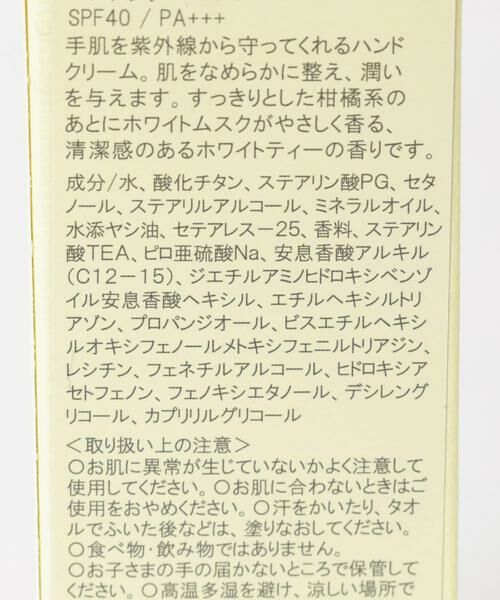 SPF40 / PA+++
手肌を紫外線から守ってくれるハンド
クリーム。肌をなめらかに整え、潤い
を与えます。すっきりとした柑橘系の
あとにホワイトムスクがやさしく香る、
清潔感のあるホワイトティーの香りです。
成分/水、酸化チタン、ステアリン酸PG、セタ
ノール、ステアリルアルコール、ミネラルオイル、
水添ヤシ油、セテアレス－25、香料、ステアリン
酸TEA、ピロ亜硫酸Na、安息香酸アルキル
（C12－15）、ジエチルアミノヒドロキシベンゾ
イル安息香酸ヘキシル、エチルヘキシルトリ
アゾン、プロパンジオール、ビスエチルヘキシ
ルオキシフェノールメトキシフェニルトリアジン、
レシチン、フェネチルアルコール、ヒドロキシア
セトフェノン、フェノキシエタノール、デシレング
リコール、カプリリルグリコール
＜取り扱い上の注意＞
○お肌に異常が生じていないかよく注意して
使用してください。○お肌に合わないときはご
使用をおやめください。○汗をかいたり、タオ
ルでふいた後などは、塗りなおしてください。
○食べ物・飲み物ではありません。
○お子さまの手の届かないところで保管して
ください。○高温多湿を避け、涼しい場所で